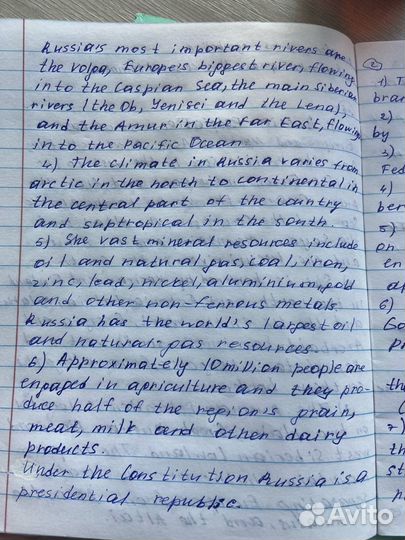 Russia's most important rivers are
the Volga, Europe's biggest river, flowing
into the Caspian Sea, the main Siberian
rivers (the Ob, Yenisei and the Lena),
and the Amur in the Far East, flowing
into the Pacific Ocean
4) The climate in Russia varies from
arctic in the north to continental in
the central part of the country
and suptropical in the south.
5) She vast mineral resources include
oil and natural gas, coal, iron,
zinc, lead, nickel, aluminium, gold
and other non-ferrous metals.
Russia has the world's largest oil
and natural-gas resources.
6) Approximately 10 million people are
engaged in agriculture and they pro-
duce half of the region's grain,
meat, milk and other dairy
products.
Under the Constitution Russia is a
presidential republic.
2
1) T
bran
2)
by
3)
Fed
4)
ber
5)
on
en
6)
Go
pr
th
2)
th
st
Avito